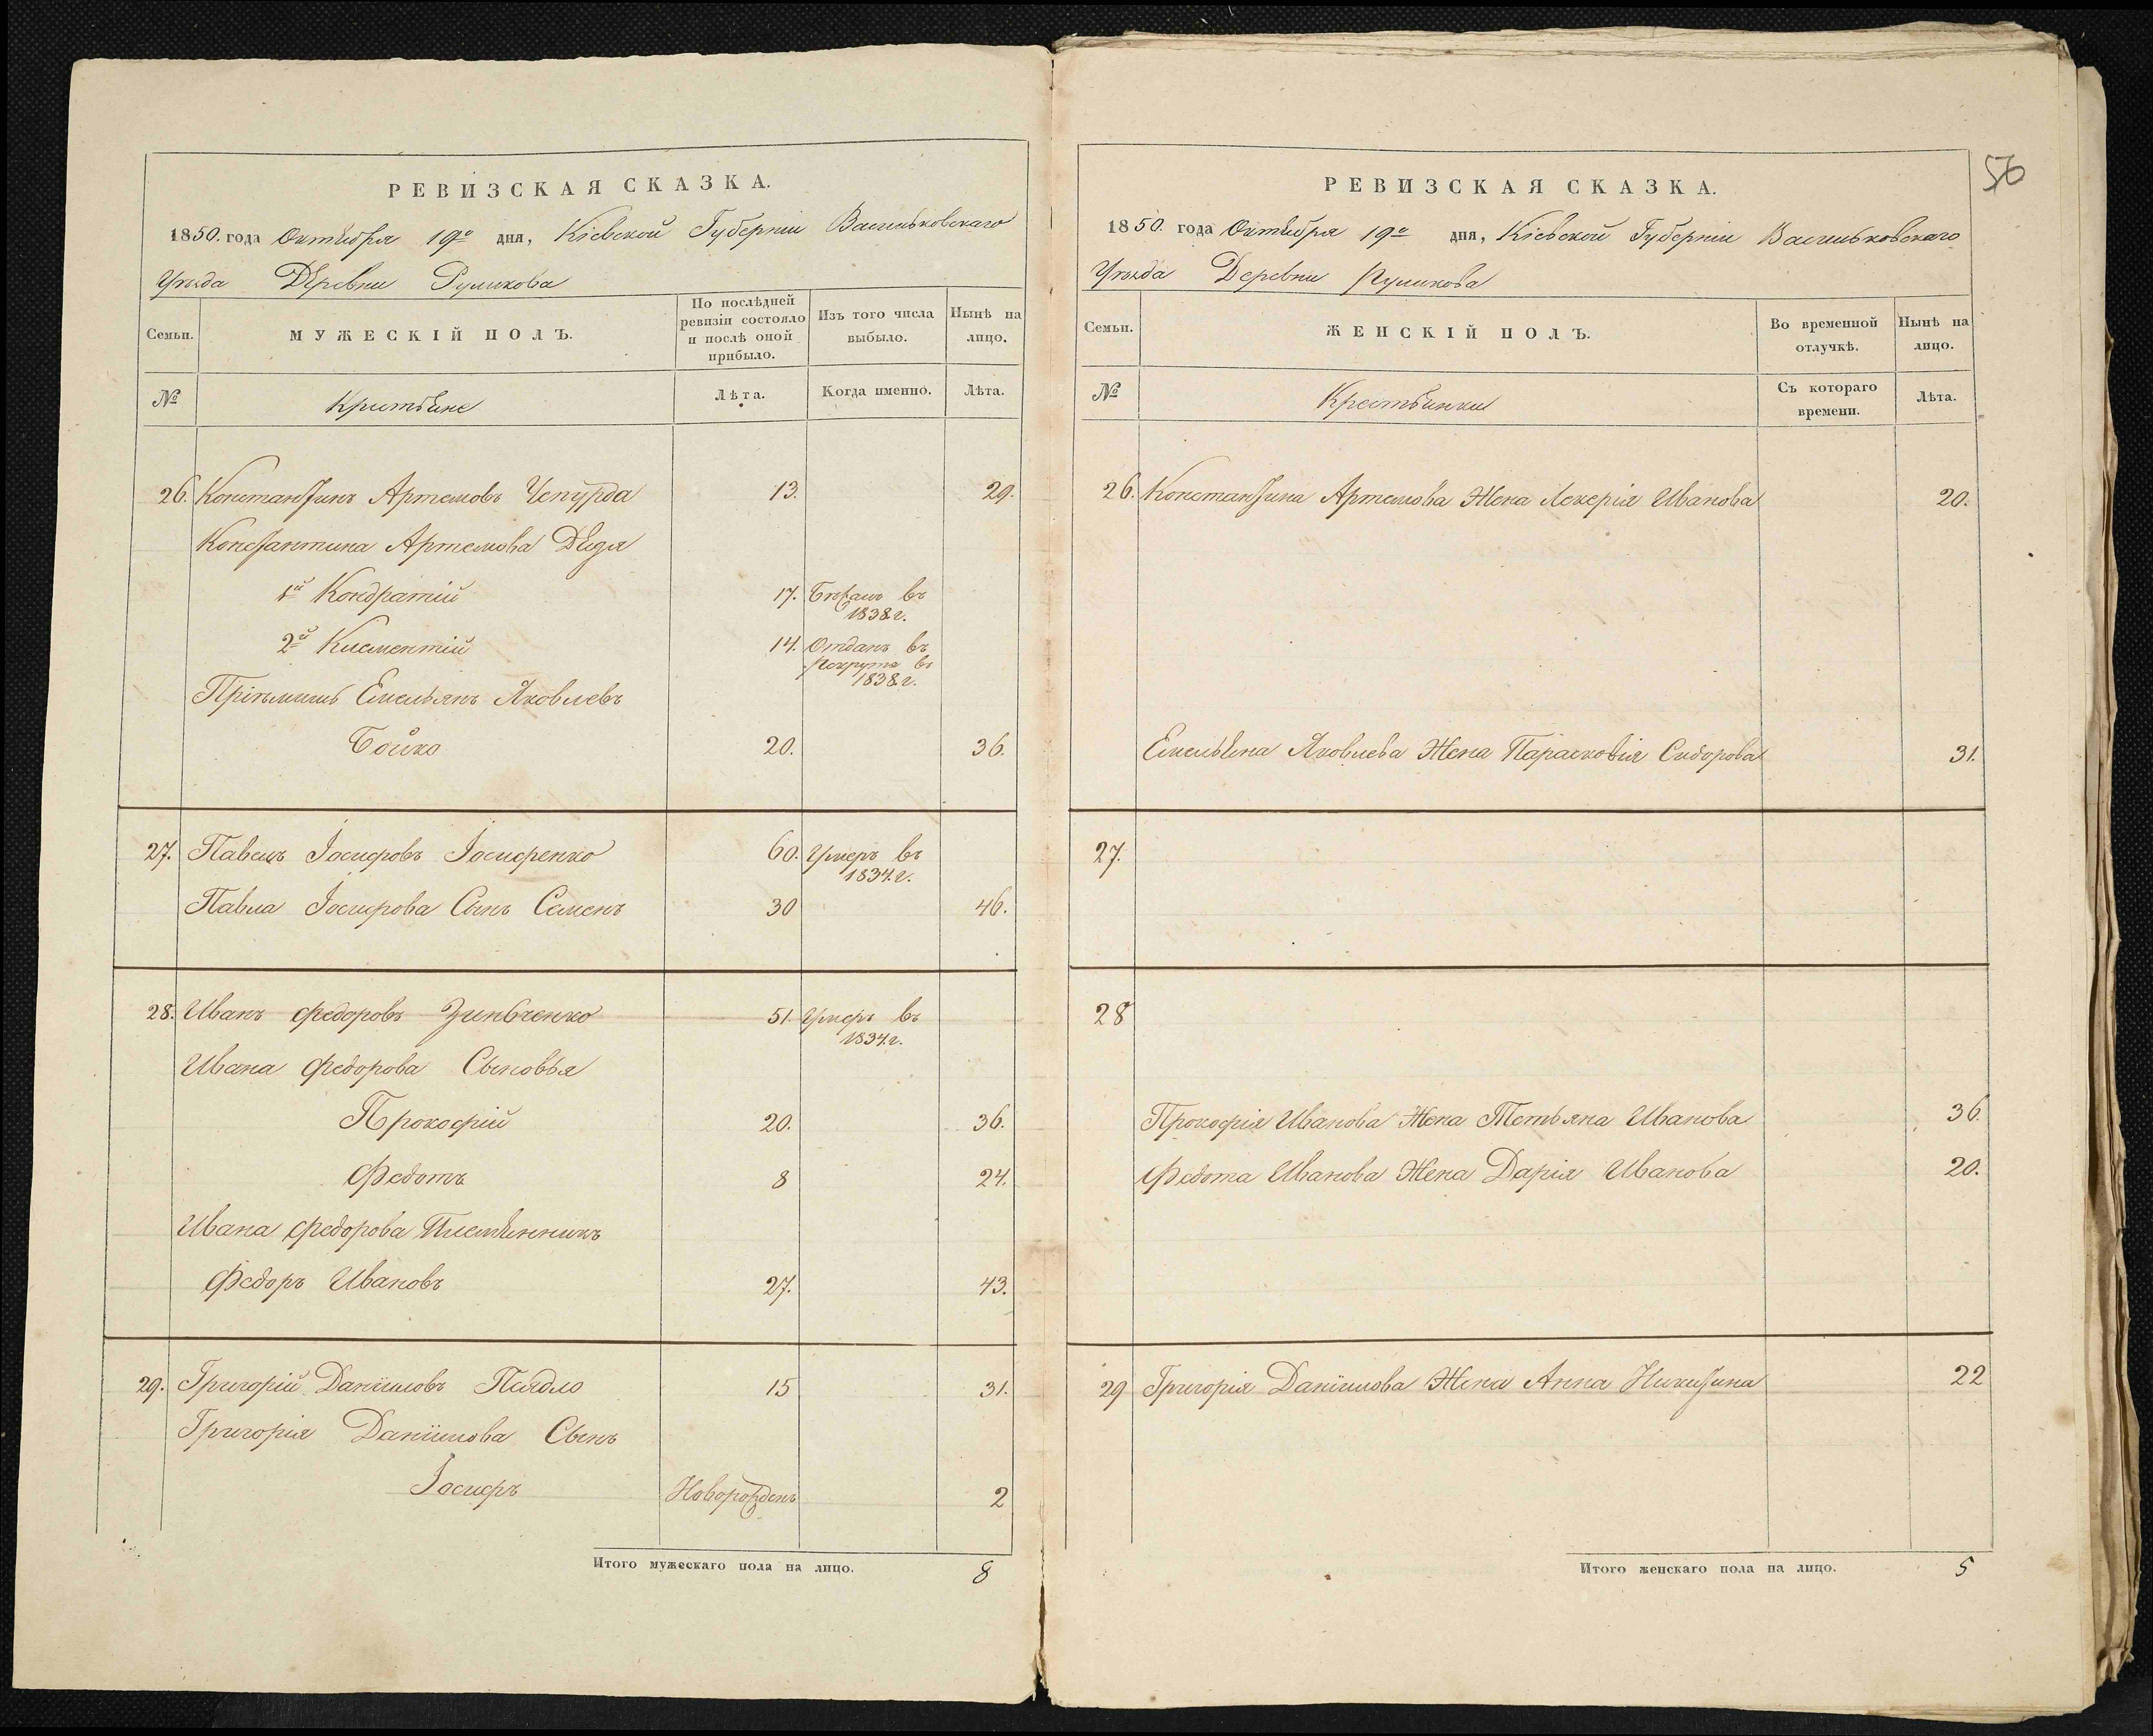 РЕВИЗСКАЯ СКАЗКА.
1850. года Октября 19го дня, Кіевской Губерніи Васильковскаго
Уѣзда Деревни Руликова
Семьи.
МУЖЕСКІЙ ПОЛЪ.
По послѣдней ревизіи состояло и послѣ оной прибыло.
Изъ того числа выбыло.
Нынѣ на лицо.
№
Крестьяне
Лѣта.
Когда именно.
Лѣта.
26. Константинъ Артемовъ Чепурда 13. 29.
Константина Артемова Дядя
1й Кондратій 17. Бѣжалъ въ 1838 г.
2й Климентій 14. Отданъ въ рекрута въ 1838 г.
Пріѣмышъ Емельянъ Яковлевъ
Бойко 20. 36.
27. Павелъ Іосифовъ Іосифенко 60. Умеръ въ 1834. г.
Павла Іосифова Сынъ Семенъ 30 46.
28. Иванъ Федоровъ Зинченко 51. Умеръ въ 1834. г.
Ивана Федорова Сыновья
Прокофій 20. 36.
Федотъ 8 24.
Ивана Федорова Племянникъ
Федоръ Ивановъ 27. 43.
29. Григорій Даніиловъ 15 31.
Григорія Даніилова Сынъ
Іосифъ Новорожденъ 2
Итого мужескаго пола на лицо. 8
56
РЕВИЗСКАЯ СКАЗКА.
1850. года Октября 19го дня, Кіевской Губерніи Васильковскаго
Уѣзда Деревни Руликова
Семьи.
ЖЕНСКІЙ ПОЛЪ.
Во временной отлучкѣ.
Нынѣ на лицо.
№
Крестьянки
Съ котораго времени.
Лѣта.
26. Константина Артемова Жена Лекерія Иванова 20.
Емельяна Яковлева Жена Парасковія Сидорова 31.
27.
28
Прокофія Иванова Жена Тетьяна Иванова 36.
Федота Иванова Жена Дарія Иванова 20.
29 Григорія Даніилова Жена Анна Никитина 22
Итого женскаго пола на лицо. 5